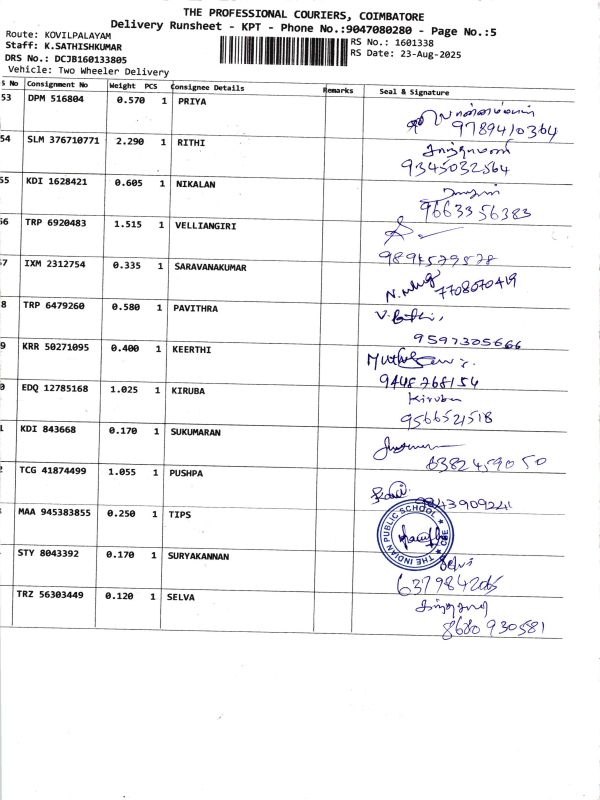 THE PROFESSIONAL COURIERS, COIMBATORE
Delivery Runsheet - KPT - Phone No.:9047080280 - Page No.:5
Route: KOVILPALAYAM
Staff: K.SATHISHKUMAR
RS No.: 1601338
DRS No.: DCJB160133805
RS Date: 23-Aug-2025
Vehicle: Two Wheeler Delivery
S No Consignment No Weight PCS Consignee Details Remarks Seal & Signature
53 DPM 516804 0.570 1 PRIYA
9789410364
54 SLM 376710771 2.290 1 RITHI
9345032564
55 KDI 1628421 0.605 1 NIKALAN
9663356383
56 TRP 6920483 1.515 1 VELLIANGIRI
9894579578
57 IXM 2312754 0.335 1 SARAVANAKUMAR
7708070419
8 TRP 6479260 0.580 1 PAVITHRA
9597305666
9 KRR 50271095 0.400 1 KEERTHI
9448768154
0 EDQ 12785168 1.025 1 KIRUBA
Kiruba
9566521518
KDI 843668 0.170 1 SUKUMARAN
6382459050
TCG 41874499 1.055 1 PUSHPA
9843909241
MAA 945383855 0.250 1 TIPS
THE INDIAN PUBLIC SCHOOL ★ CBE ★
STY 8043392 0.170 1 SURYAKANNAN
Selvi
637984205
TRZ 56303449 0.120 1 SELVA
8680930581